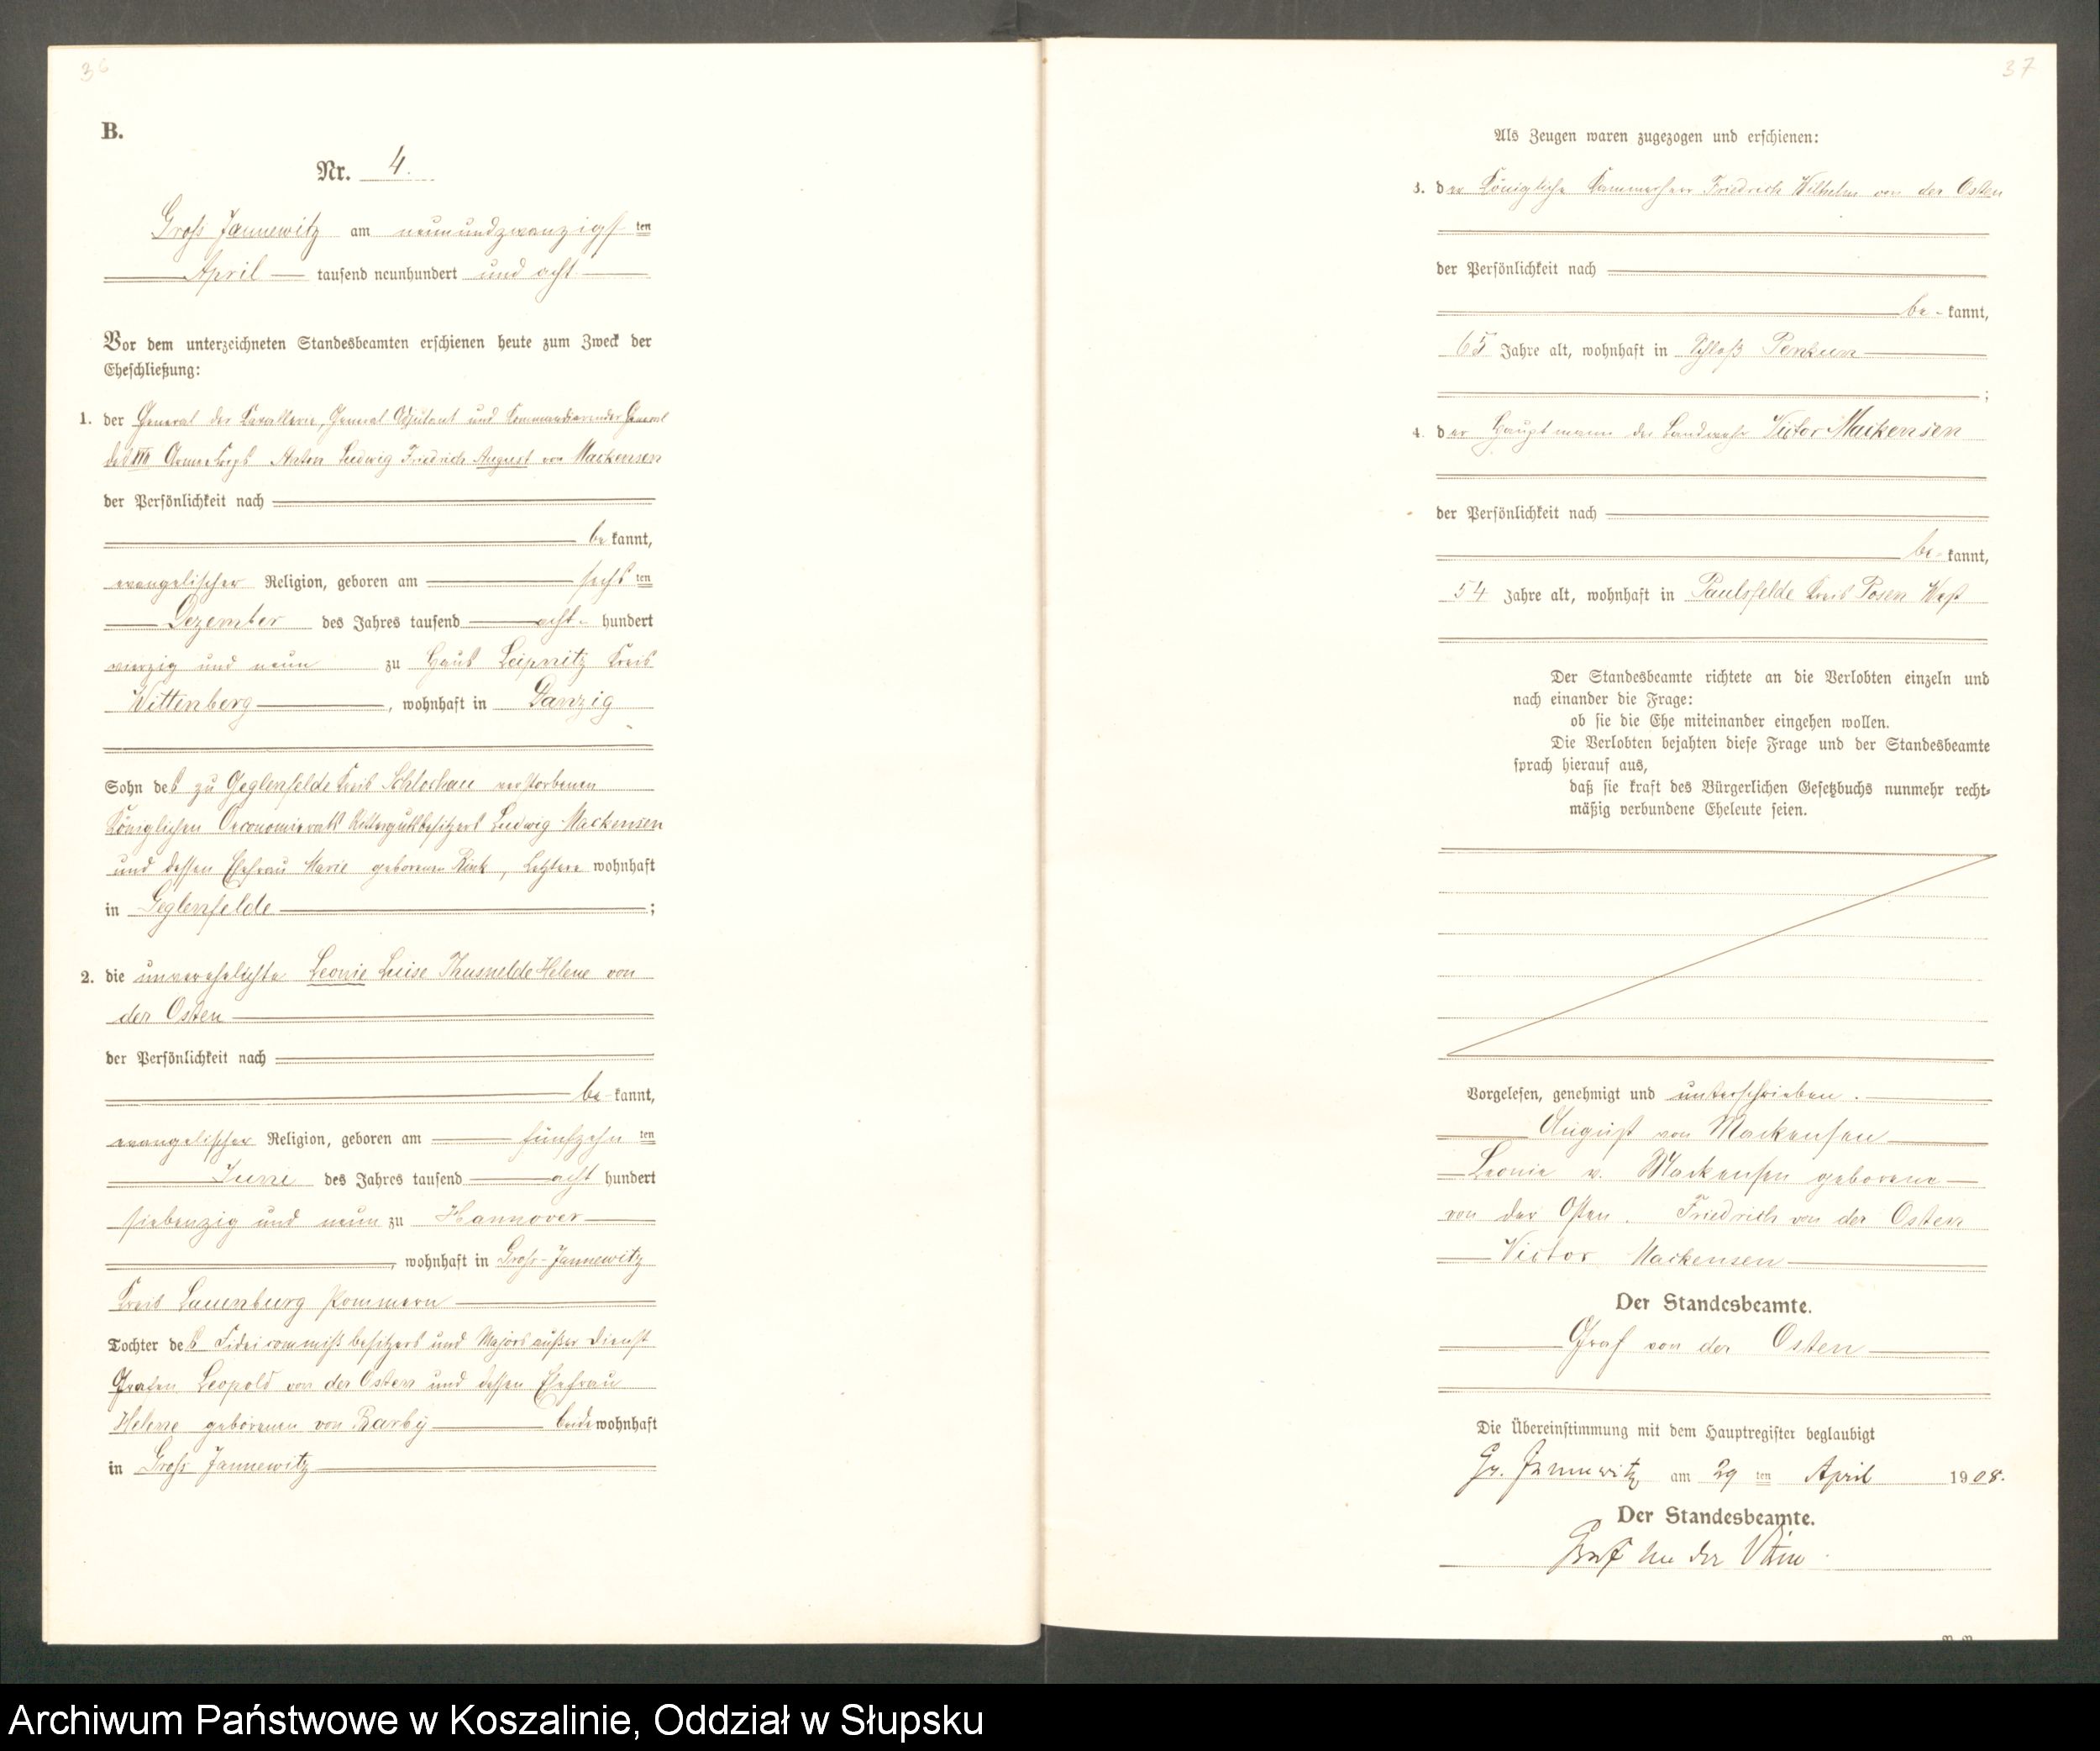 36
B.
Nr. 4.
Gross Jannewitz am neunundzwanzigsten
April tausend neunhundert und acht
Vor dem unterzeichneten Standesbeamten erschienen heute zum Zweck der
Eheschließung:
1. der General der Kavallerie, General Adjutant und Kommandierender General
des XVII Armee Korps Anton Ludwig Friedrich August von Mackensen
der Persönlichkeit nach
be kannt,
evangelischer Religion, geboren am sechsten
Dezember des Jahres tausend acht hundert
vierzig und neun zu Haus Leipnitz Kreis
Wittenberg, wohnhaft in Danzig
Sohn des zu Geglenfelde Kreis Schlochau verstorbenen
Königlichen Oeconomierats Rittergutsbesitzers Ludwig Mackensen
und dessen Ehefrau Marie geborenen Rink, Letztere wohnhaft
in Geglenfelde;
2. die unverehelichte Leonie Luise Thusnelde Helene von
der Osten
der Persönlichkeit nach
be kannt,
evangelischer Religion, geboren am fünfzehnten
Juni des Jahres tausend acht hundert
siebenzig und neun zu Hannover
, wohnhaft in Gross-Jannewitz
Kreis Lauenburg Pommern
Tochter des Fideicommißbesitzers und Majors außer Dienst
Grafen Leopold von der Osten und dessen Ehefrau
Helene geborenen von Barby beide wohnhaft
in Gross Jannewitz
37
Als Zeugen waren zugezogen und erschienen:
3. der Königliche Kammerherr Friedrich Wilhelm von der Osten
der Persönlichkeit nach
be-kannt,
65 Jahre alt, wohnhaft in Schloß Penkun
;
4. der Hauptmann der Landwehr Victor Mackensen
der Persönlichkeit nach
be-kannt,
54 Jahre alt, wohnhaft in Paulsfelde Kreis Posen West
Der Standesbeamte richtete an die Verlobten einzeln und
nach einander die Frage:
ob sie die Ehe miteinander eingehen wollen.
Die Verlobten bejahten diese Frage und der Standesbeamte
sprach hierauf aus,
daß sie kraft des Bürgerlichen Gesetzbuchs nunmehr recht-
mäßig verbundene Eheleute seien.
Vorgelesen, genehmigt und unterschrieben.
August von Mackensen
Leonie v. Mackensen geborene
von der Osten. Friedrich von der Osten
Victor Mackensen
Der Standesbeamte.
Graf von der Osten
Die Übereinstimmung mit dem Hauptregister beglaubigt
Gr. Jannewitz am 29 ten April 1908.
Der Standesbeamte.
Graf von der Osten.
Archiwum Państwowe w Koszalinie, Oddział w Słupsku